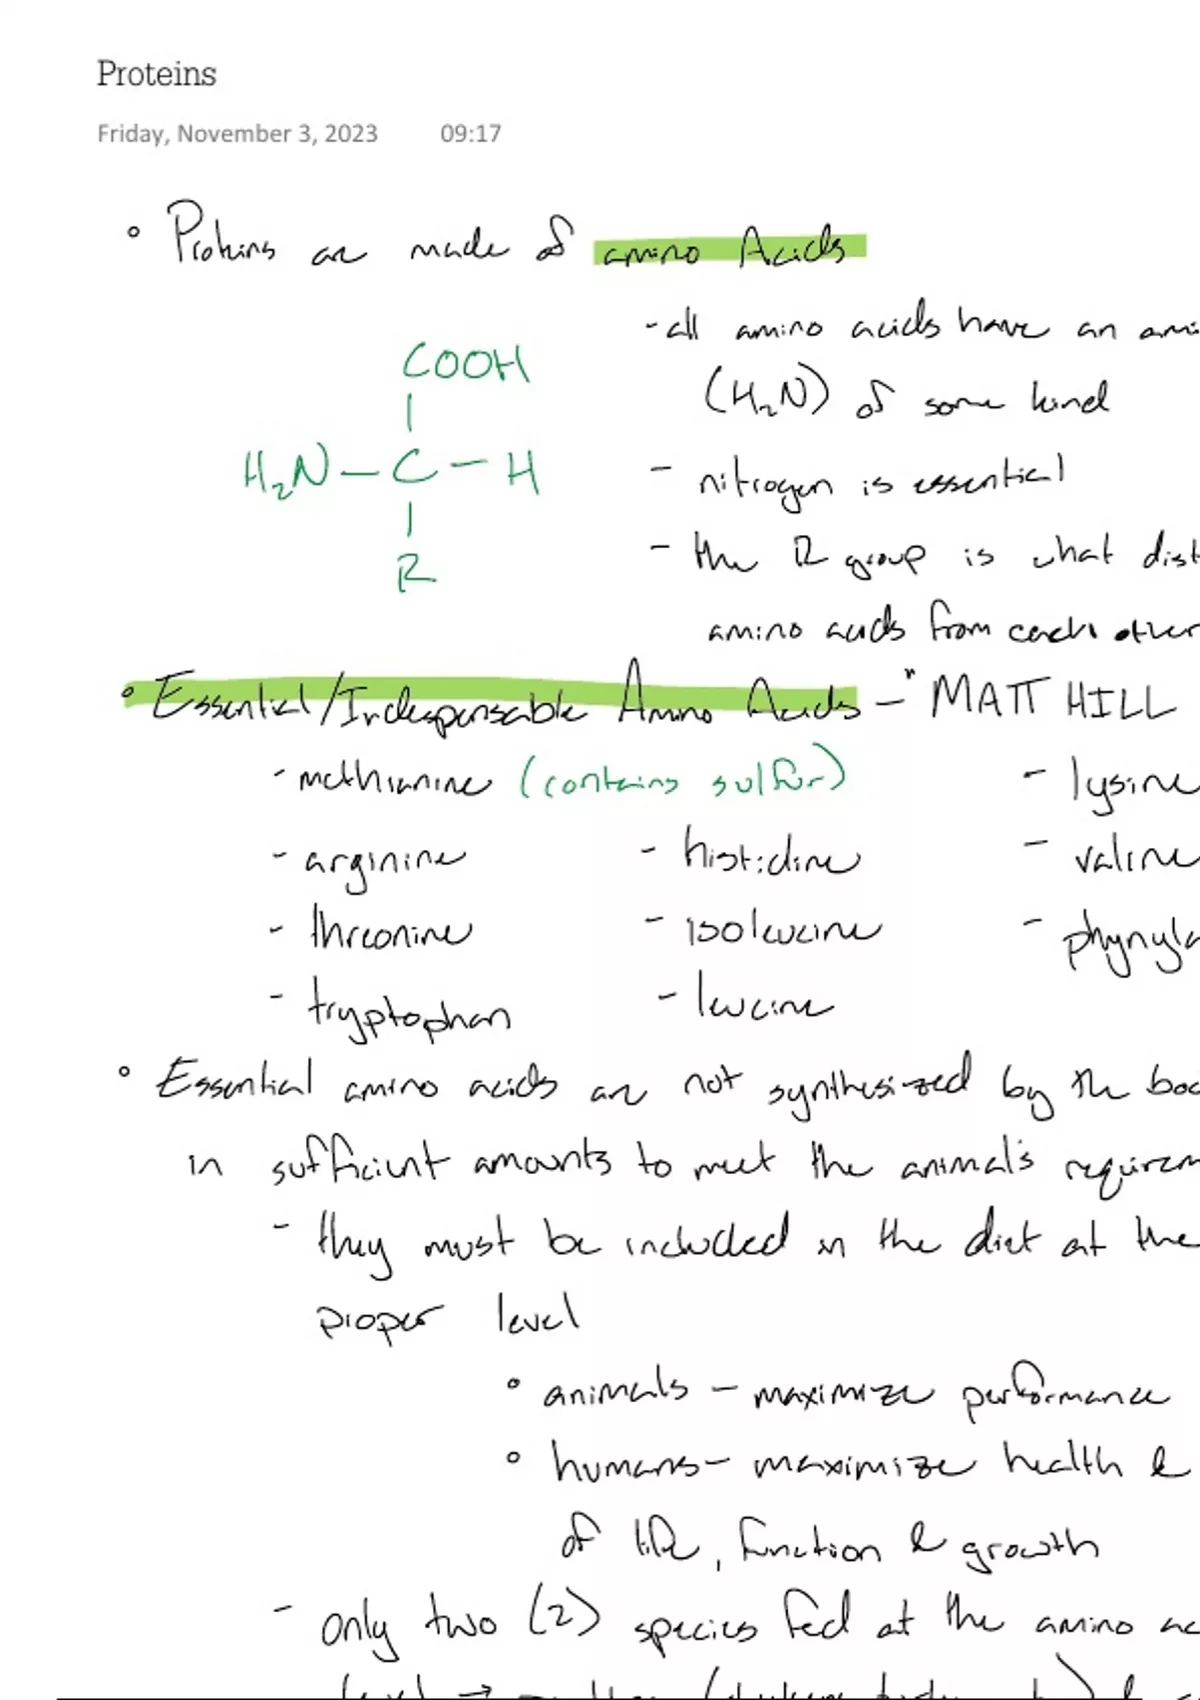 Proteins
Friday, November 3, 2023 09:17
° Proteins are made of amino Acids
COOH
H₂N – C – H
R
- all amino acids have an ami
(H₂N) of some kind
- nitrogen is essential
- the R group is what dist
amino acids from each other
° Essential/Indespensable Amino Acids – "MATT HILL
- methianine (contains sulfur)
- arginine
- threonine
- tryptophan
- histidine
- isoleucine
- leucine
- lysine
- valine
- phynyla
° Essential amino acids are not synthesized by the bod
in sufficient amounts to meet the animal's requirem
- they must be included in the diet at the
proper level
° animals – maximize performance
° humans – maximize health &
of life, function & growth
- only two (2) species fed at the amino ac
level →